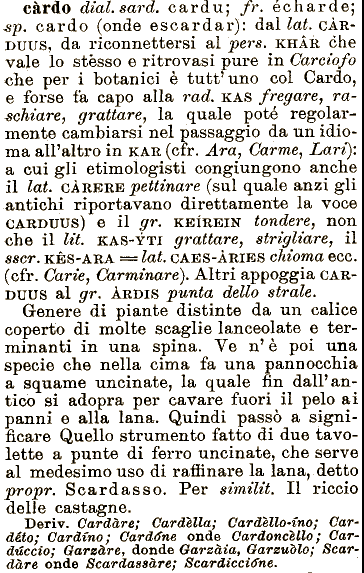 càrdo dial. sard. cardu; fr. écharde;
sp. cardo (onde escardar): dal lat. CÀR-
DUUS, da riconnettersi al pers. KHÂR che
vale lo stèsso e ritrovasi pure in Carciofo
che per i botanici è tutt'uno col Cardo,
e forse fa capo alla rad. KAS fregare, ra-
schiare, grattare, la quale poté regolar-
mente cambiarsi nel passaggio da un idio-
ma all'altro in KAR (cfr. Ara, Carme, Lari):
a cui gli etimologisti congiungono anche
il lat. CÀRERE pettinare (sul quale anzi gli
antichi riportavano direttamente la voce
CARDUUS) e il gr. KEÍREIN tondere, non
che il lit. KAS-ÝTI grattare, strigliare, il
sscr. KÉS-ARA = lat. CAES-ÀRIES chioma ecc.
(cfr. Carie, Carminare). Altri appoggia CAR-
DUUS al gr. ÀRDIS punta dello strale.
Genere di piante distinte da un calice
coperto di molte scaglie lanceolate e ter-
minanti in una spina. Ve n'è poi una
specie che nella cima fa una pannocchia
a squame uncinate, la quale fin dall'an-
tico si adopra per cavare fuori il pelo ai
panni e alla lana. Quindi passò a signi-
ficare Quello strumento fatto di due tavo-
lette a punte di ferro uncinate, che serve
al medesimo uso di raffinare la lana, detto
propr. Scardasso. Per similit. Il riccio
delle castagne.
Deriv. Cardàre; Cardèlla; Cardèllo-íno; Car-
déto; Cardíno; Cardóne onde Cardoncèllo; Car-
dúccio; Garzàre, donde Garzàia, Garzuòlo; Scar-
dàre onde Scardassàre; Scardiccióne.